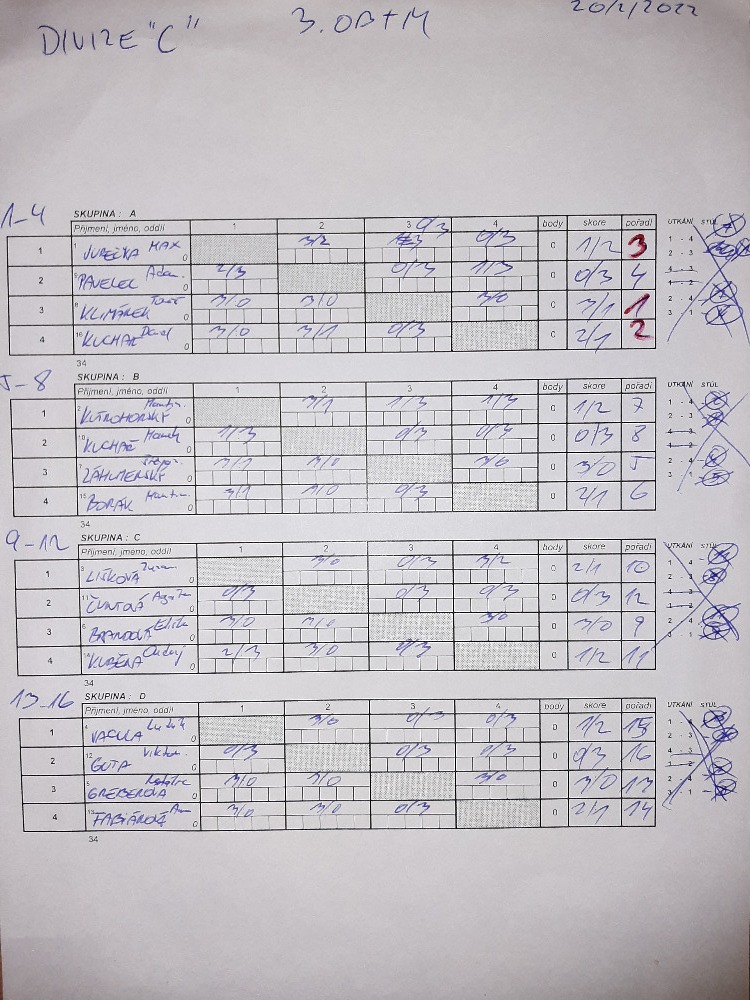 DIVIZE "C" 3. OBTM 20/2/2022
1-4 SKUPINA : A
Příjmení, jméno, oddíl 1 2 3 4 body skore pořadí UTKÁNÍ STŮL
0/3
1 JUREČKA MAX 0 3/2 0/3 0 1/2 3 1 - 4
2 PAVELEC Adam 0 2/3 0/3 1/3 0 0/3 4 2 - 3
3 KLIMÁREK Tomáš 0 3/0 3/0 3/0 0 3/1 1
4 16 KUCHAŘ David 0 3/0 3/1 0/3 0 2/1 2
34
5-8 SKUPINA : B
Příjmení, jméno, oddíl 1 2 3 4 body skore pořadí UTKÁNÍ STŮL
1 KUTNOHORSKÝ 0 3/1 1/3 1/3 0 1/2 7 1 - 4
2 KUCHAŘ 0 1/3 0/3 0/3 0 0/3 8 2 - 3
3 0 3/1 3/0 3/0 0 3/0 5
4 BORÁK 0 3/1 3/0 0/3 0 2/1 6
34
9-12 SKUPINA : C
Příjmení, jméno, oddíl 1 2 3 4 body skore pořadí UTKÁNÍ STŮL
1 LIŠKOVÁ 0 3/0 0/3 3/2 0 2/1 10 1 - 4
2 0 0/3 0/3 0/3 0 0/3 12 2 - 3
3 0 3/0 3/0 3/0 0 3/0 9
4 KUBĚNA Ondřej 0 2/3 3/0 0/3 0 1/2 11
34
13-16 SKUPINA : D
Příjmení, jméno, oddíl 1 2 3 4 body skore pořadí UTKÁNÍ STŮL
1 VACULA 0 3/0 0/3 0/3 0 1/2 15 1 - 4
2 12 GUTA 0 0/3 0/3 0/3 0 0/3 16 2 - 3
3 GREBEROVÁ 0 3/0 3/0 3/0 0 3/0 13
4 FABIÁNOVÁ 0 3/0 3/0 0/3 0 2/1 14
34